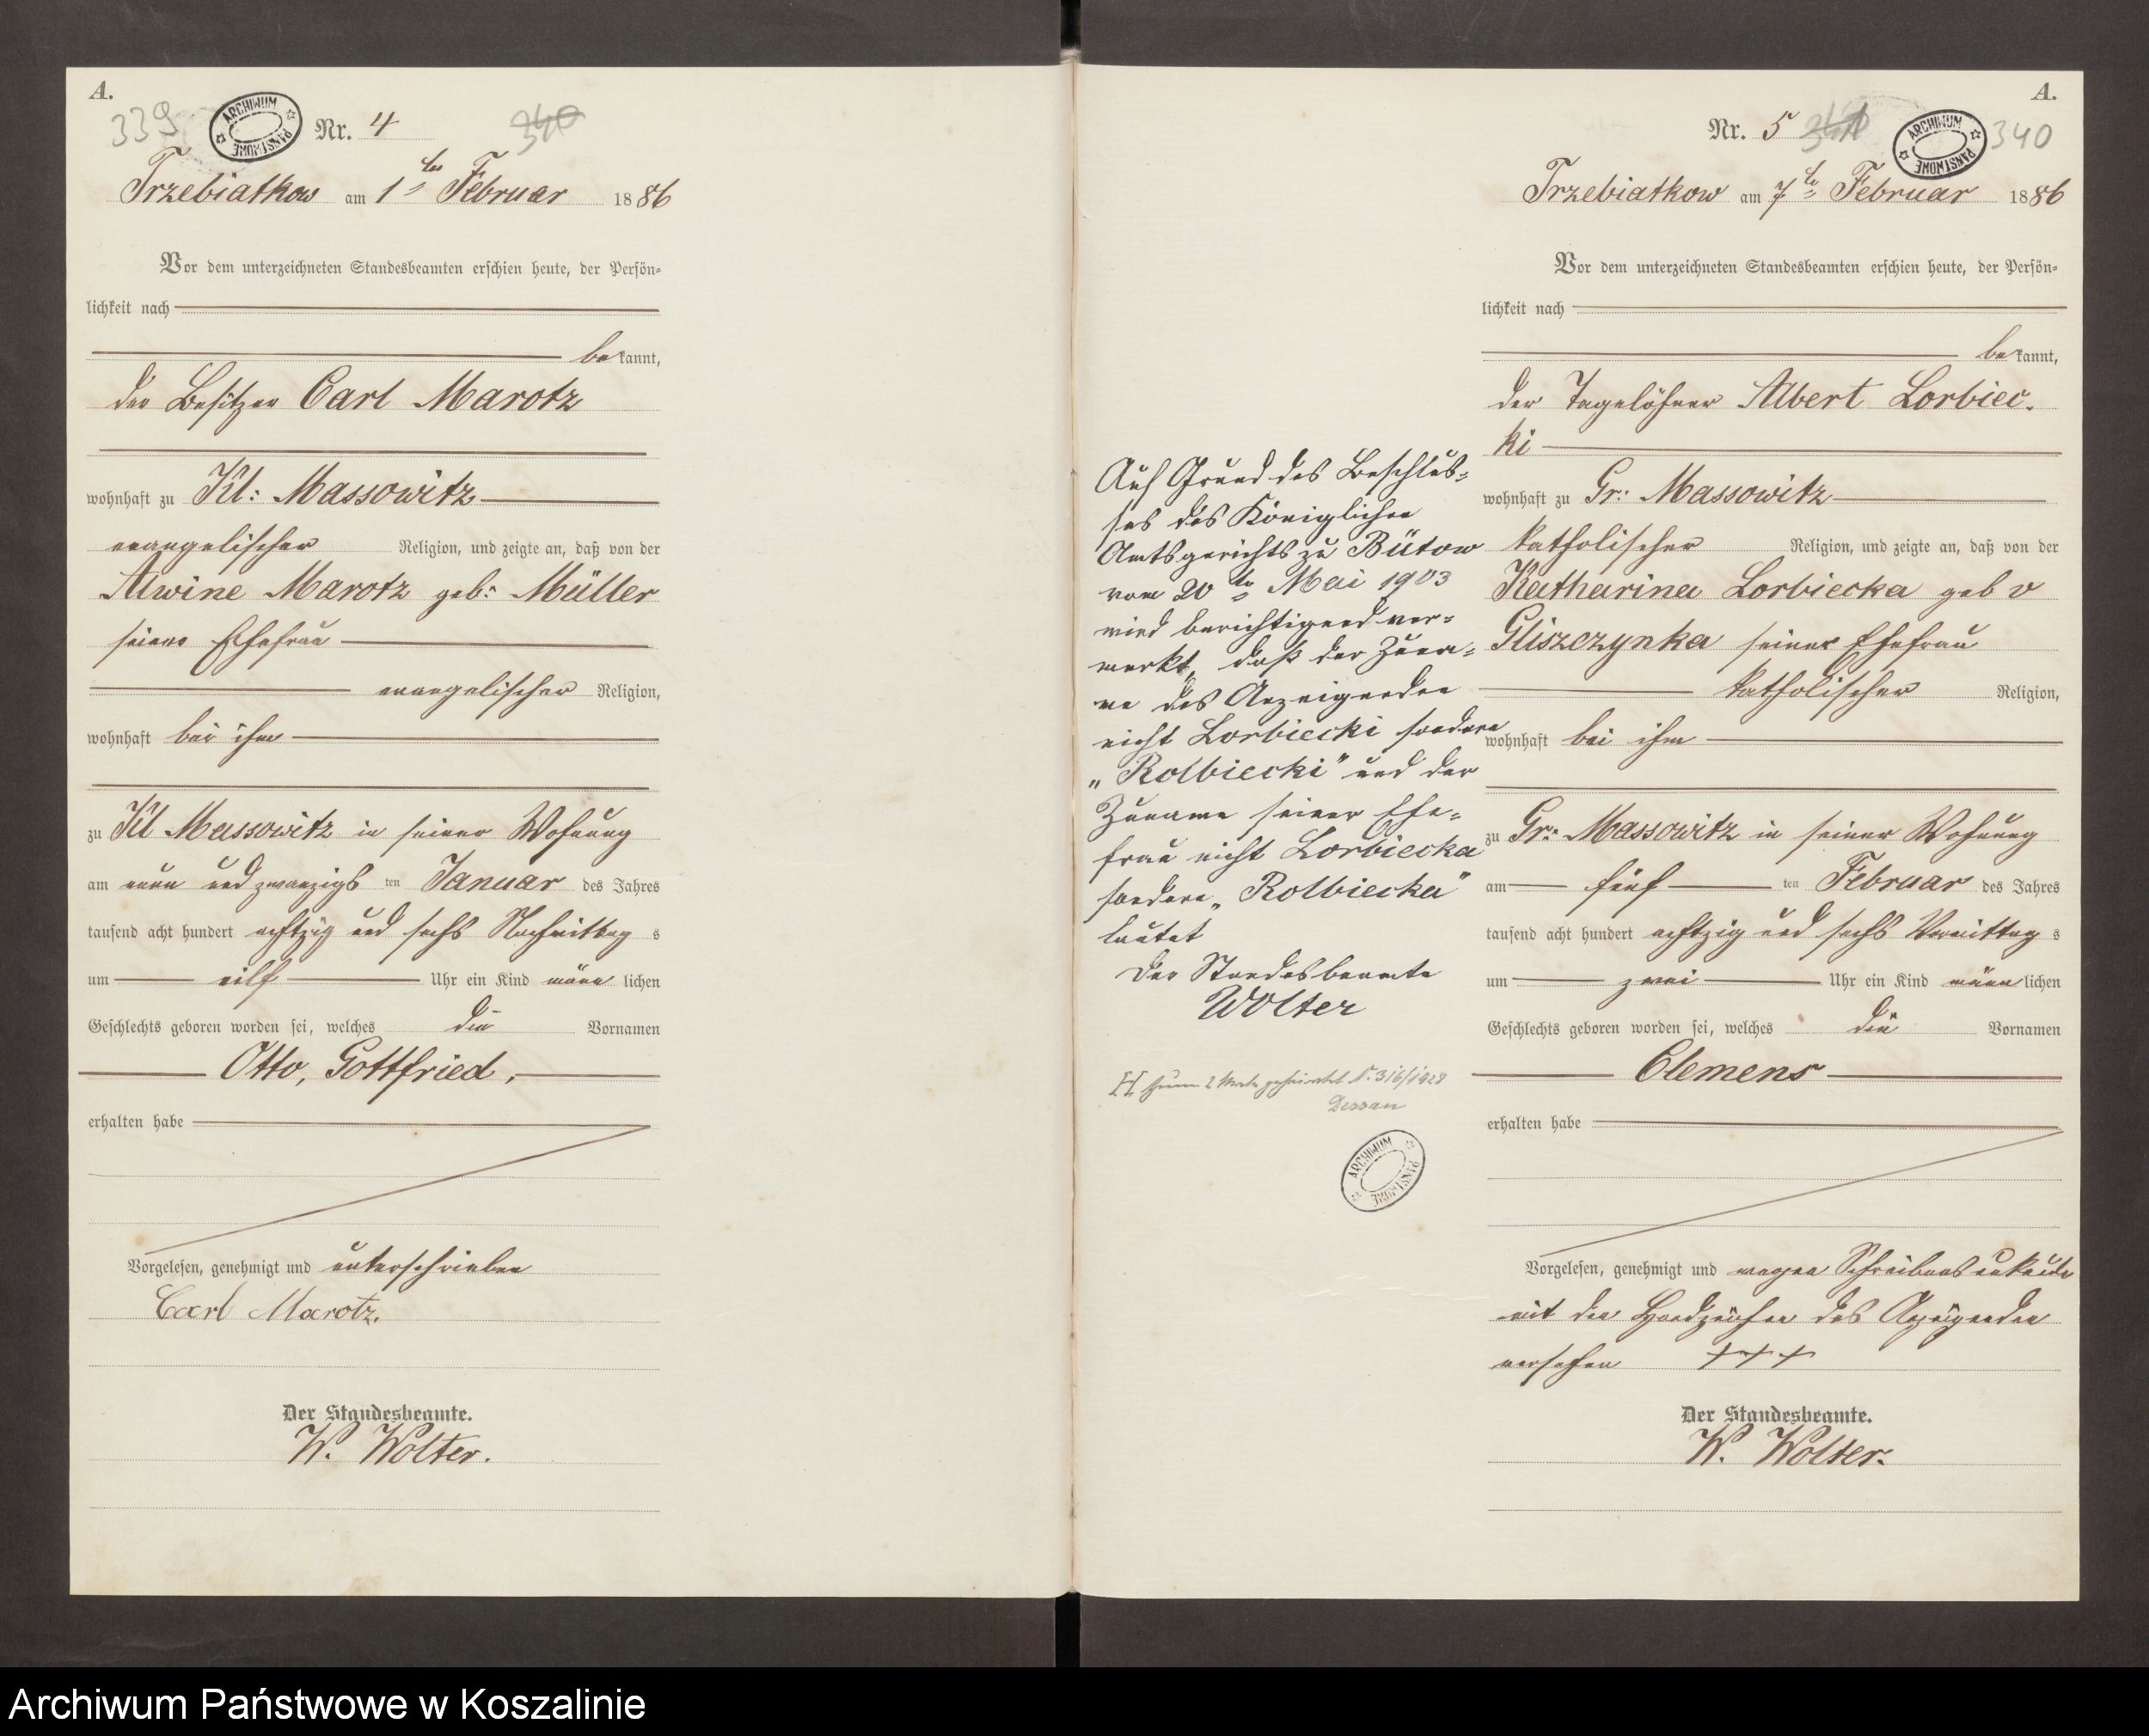 A.
339
ARCHIWUM PAŃSTWOWE
Nr. 4
340
Trzebiatkow am 1ten Februar 1886
Vor dem unterzeichneten Standesbeamten erschien heute, der Persön-
lichkeit nach
bekannt,
der Besitzer Carl Marotz
wohnhaft zu Kl: Massowitz
evangelischer Religion, und zeigte an, daß von der
Alwine Marotz geb: Müller
seiner Ehefrau
evangelischer Religion,
wohnhaft bei ihm
zu Kl Massowitz in seiner Wohnung
am neun und zwanzigs ten Januar des Jahres
tausend acht hundert achtzig und sechs Nachmittag s
um eilf Uhr ein Kind männ lichen
Geschlechts geboren worden sei, welches die Vornamen
Otto, Gottfried,
erhalten habe
Vorgelesen, genehmigt und unterschrieben
Carl Marotz.
Der Standesbeamte.
W. Wolter.
A.
Nr. 5
341
ARCHIWUM PAŃSTWOWE
340
Trzebiatkow am 7te Februar 1886
Vor dem unterzeichneten Standesbeamten erschien heute, der Persön-
lichkeit nach
bekannt,
der Tagelöhner Albert Lorbiec-
ki
wohnhaft zu Gr: Massowitz
katholischer Religion, und zeigte an, daß von der
Katharina Lorbiecka geb v
Gliszczynka seiner Ehefrau
katholischer Religion,
wohnhaft bei ihm
zu Gr: Massowitz in seiner Wohnung
am fünf ten Februar des Jahres
tausend acht hundert achtzig und sechs Vormittag s
um zwei Uhr ein Kind männ lichen
Geschlechts geboren worden sei, welches die Vornamen
Clemens
erhalten habe
Vorgelesen, genehmigt und wegen Schreibensunkunde
mit den Handzeichen des Anzeigenden
versehen +++
Der Standesbeamte.
W. Wolter.
Auf Grund des Beschlus-
ses des Königlichen
Amtsgerichts zu Bütow
vom 20te Mai 1903
wird berichtigend ver-
merkt, daß der Zuna-
me des Anzeigenden
nicht Lorbiecki sondern
„Rolbiecki" und der
Zuname seiner Ehe-
frau nicht Lorbiecka
sondern „Rolbiecka"
lautet
Der Standesbeamte
Wolter
zum 2 Male geheiratet Nr. 316/1929
Dessau
ARCHIWUM PAŃSTWOWE
Archiwum Państwowe w Koszalinie